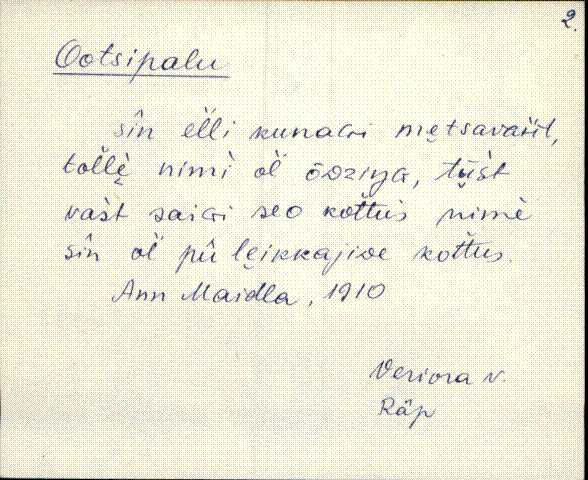 2.
Ootsipalu
sîn elli kunaɢi metsavašt,
tollè̬ nimi ol̀ ōᴅziŋɢ, tüšt
vašt saiɢi seo kottus nimè
sîn ol̀ pū leikkajiᴅe kottus.
Ann Maidla, 1910
Veriora v.
Räp